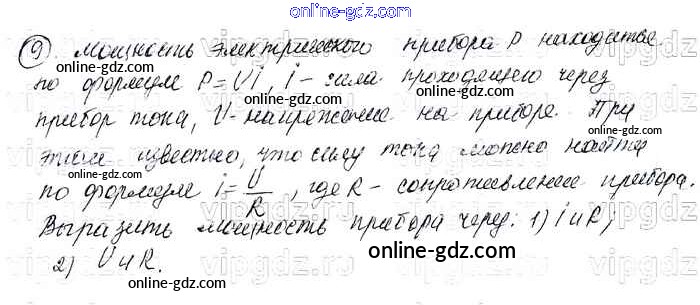 online-gdz.com
9 Мощность электрического прибора P находится
по формуле P=Ui, i - сила проходящего через
прибор тока, U - напряжение на приборе. При
этом известно, что силу тока можно найти
по формуле i= U/R, где R - сопротивление прибора.
Выразить мощность прибора через: 1) i и R;
2) U и R.
online-gdz.com
online-gdz.com
online-gdz.com
online-gdz.com
online-gdz.com
online-gdz.com
online-gdz.com
online-gdz.com